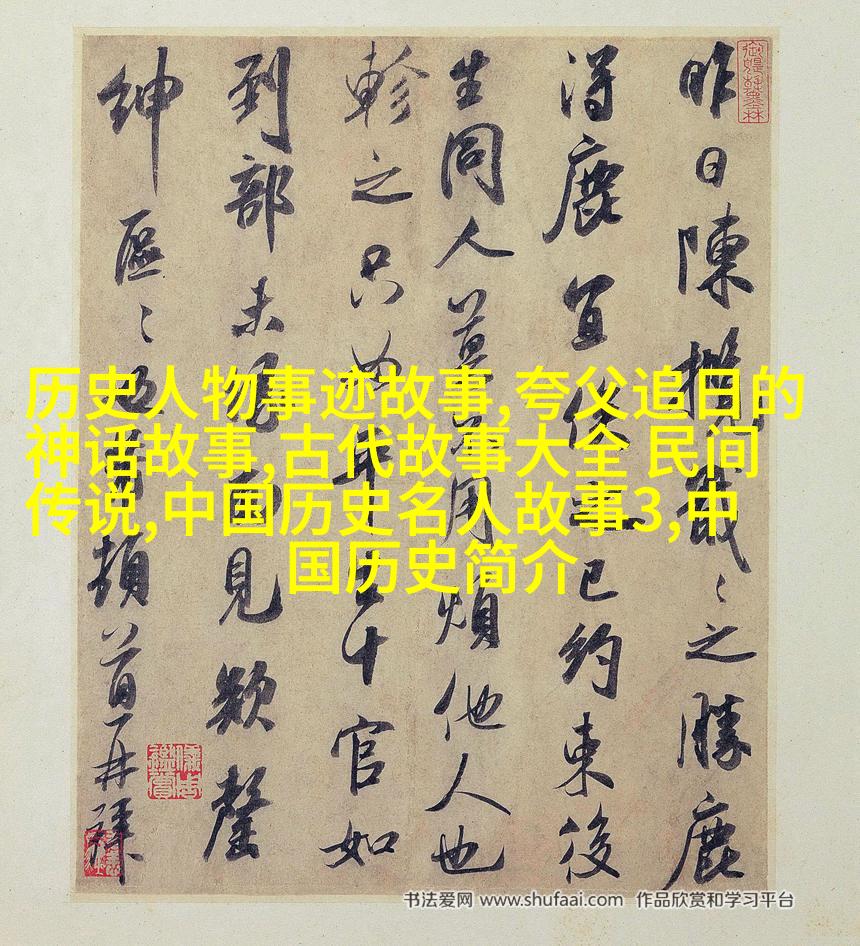 历史人物事迹故事,夸父追日的
神话故事,古代故事大全 民间
传说,中国历史名人故事3,中
国历史简介
昨日陳戢〻之勝鹿
得鹿宜已約束後
生同人用煩他人也
軫之只十官如
到部未而見欵罄
紳區〻頓首再拜
书法爱网 www.shufaai.com 作品欣赏和学习平台